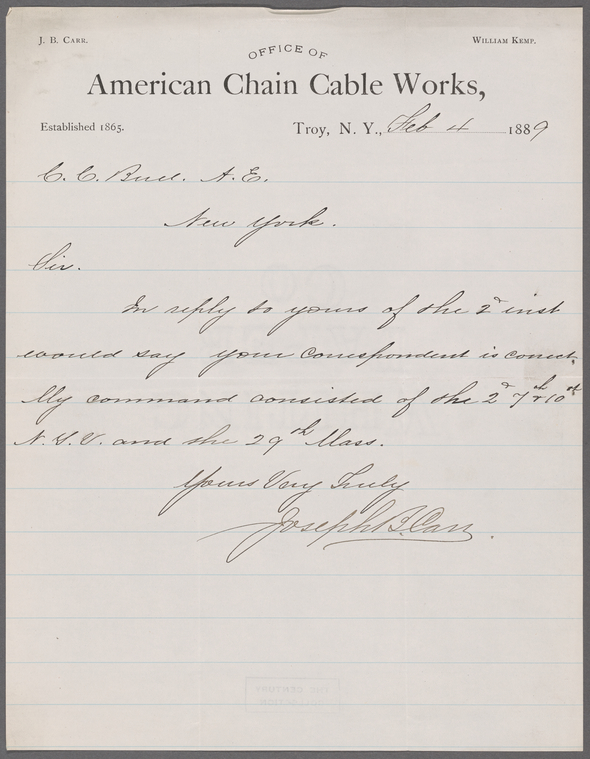 J. B. Carr.
William Kemp.
OFFICE OF
American Chain Cable Works,
Established 1865.
Troy, N. Y., Feb 4 1889
C. C. Buel. A. E.
New York.
Sir.
In reply to yours of the 2d inst
would say your correspondent is correct,
My command consisted of the 2d 7th & 10th
N.Y.V. and the 29th Mass.
Yours Very Truly
Joseph B. Carr.
THE CENTURY